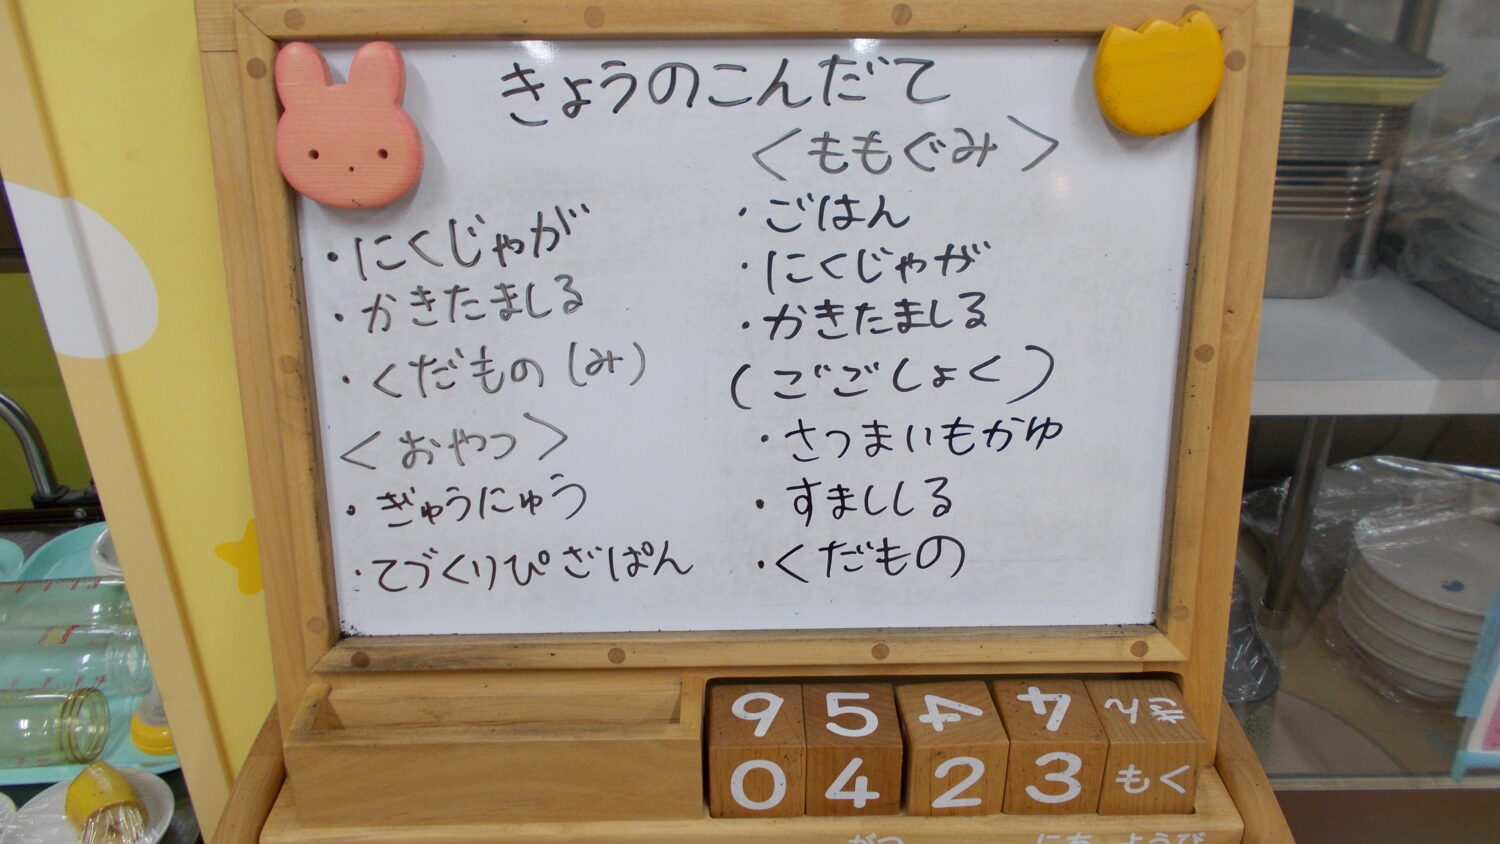 きょうのこんだて
・にくじゃが
・かきたましる
・くだもの(み)
<おやつ>
・ぎゅうにゅう
・てづくりぴざぱん
<ももぐみ>
・ごはん
・にくじゃが
・かきたましる
(ごごしょく)
・さつまいもかゆ
・すましじる
・くだもの
6 5 4 4 きん
0 4 2 3 もく
がつ にち ようび